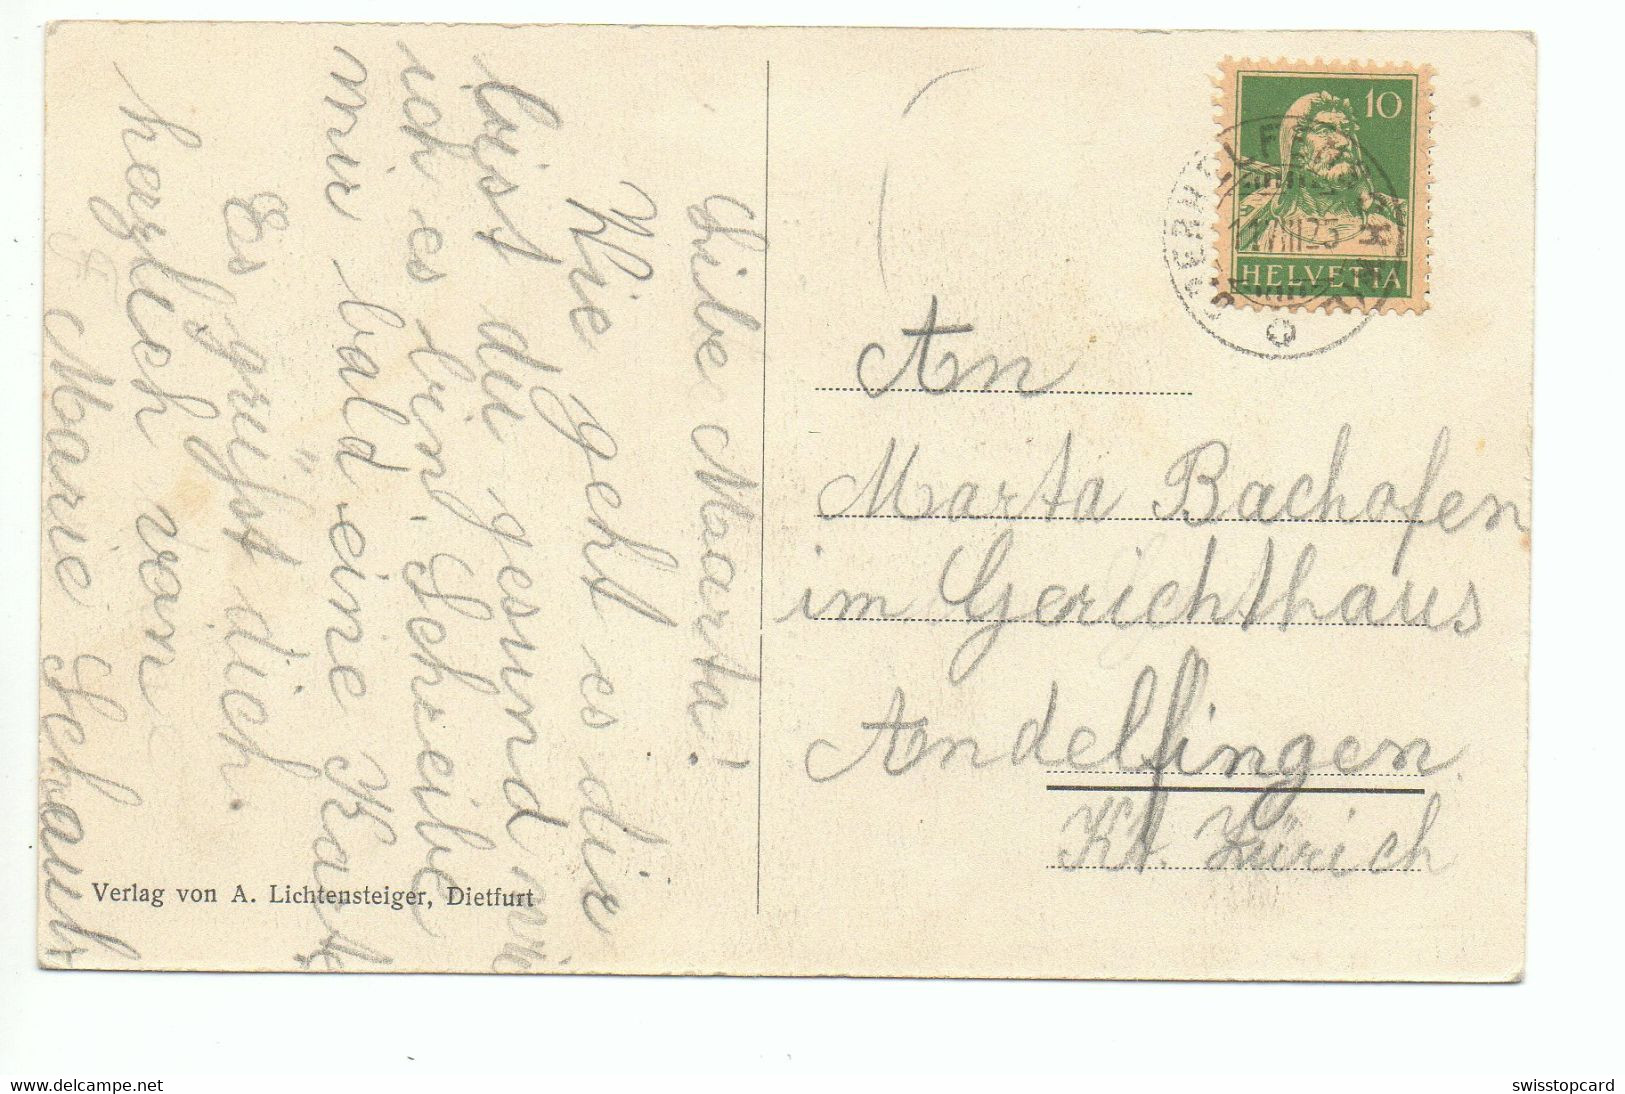 Libe Maarta!
Wie geht es dir
bist du gesund wi
ich es bin. Schreibe
mir bald eine Kart
Es grüsst dich
herzlich von
Marie Schaub
Verlag von A. Lichtensteiger, Dietfurt
10
HELVETIA
An
Marta Bachofen
im Gerichthaus
Andelfingen.
Kt. Zürich
delcampe.net
swisstopcard